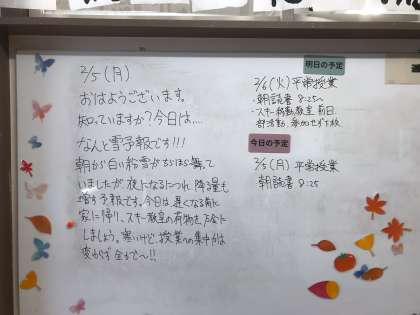 2/5(月)
おはようございます。
知っていますか?今日は…
なんと雪予報です!!!
朝から白い粉雪がちらほら舞って
いましたが、夜になるにつれ、降る量も
増す予報です。今日は、遅くなる前に
家に帰り、スキー教室の荷物を万全に
しましょう。寒いけど、授業への集中力は
変わらず全力で〜!!
明日の予定
2/6(火)平常授業
・朝読書 8:25〜
・スキー移動教室前日
部活動、参加せず下校
今日の予定
2/5(月)平常授業
朝読書 8:25